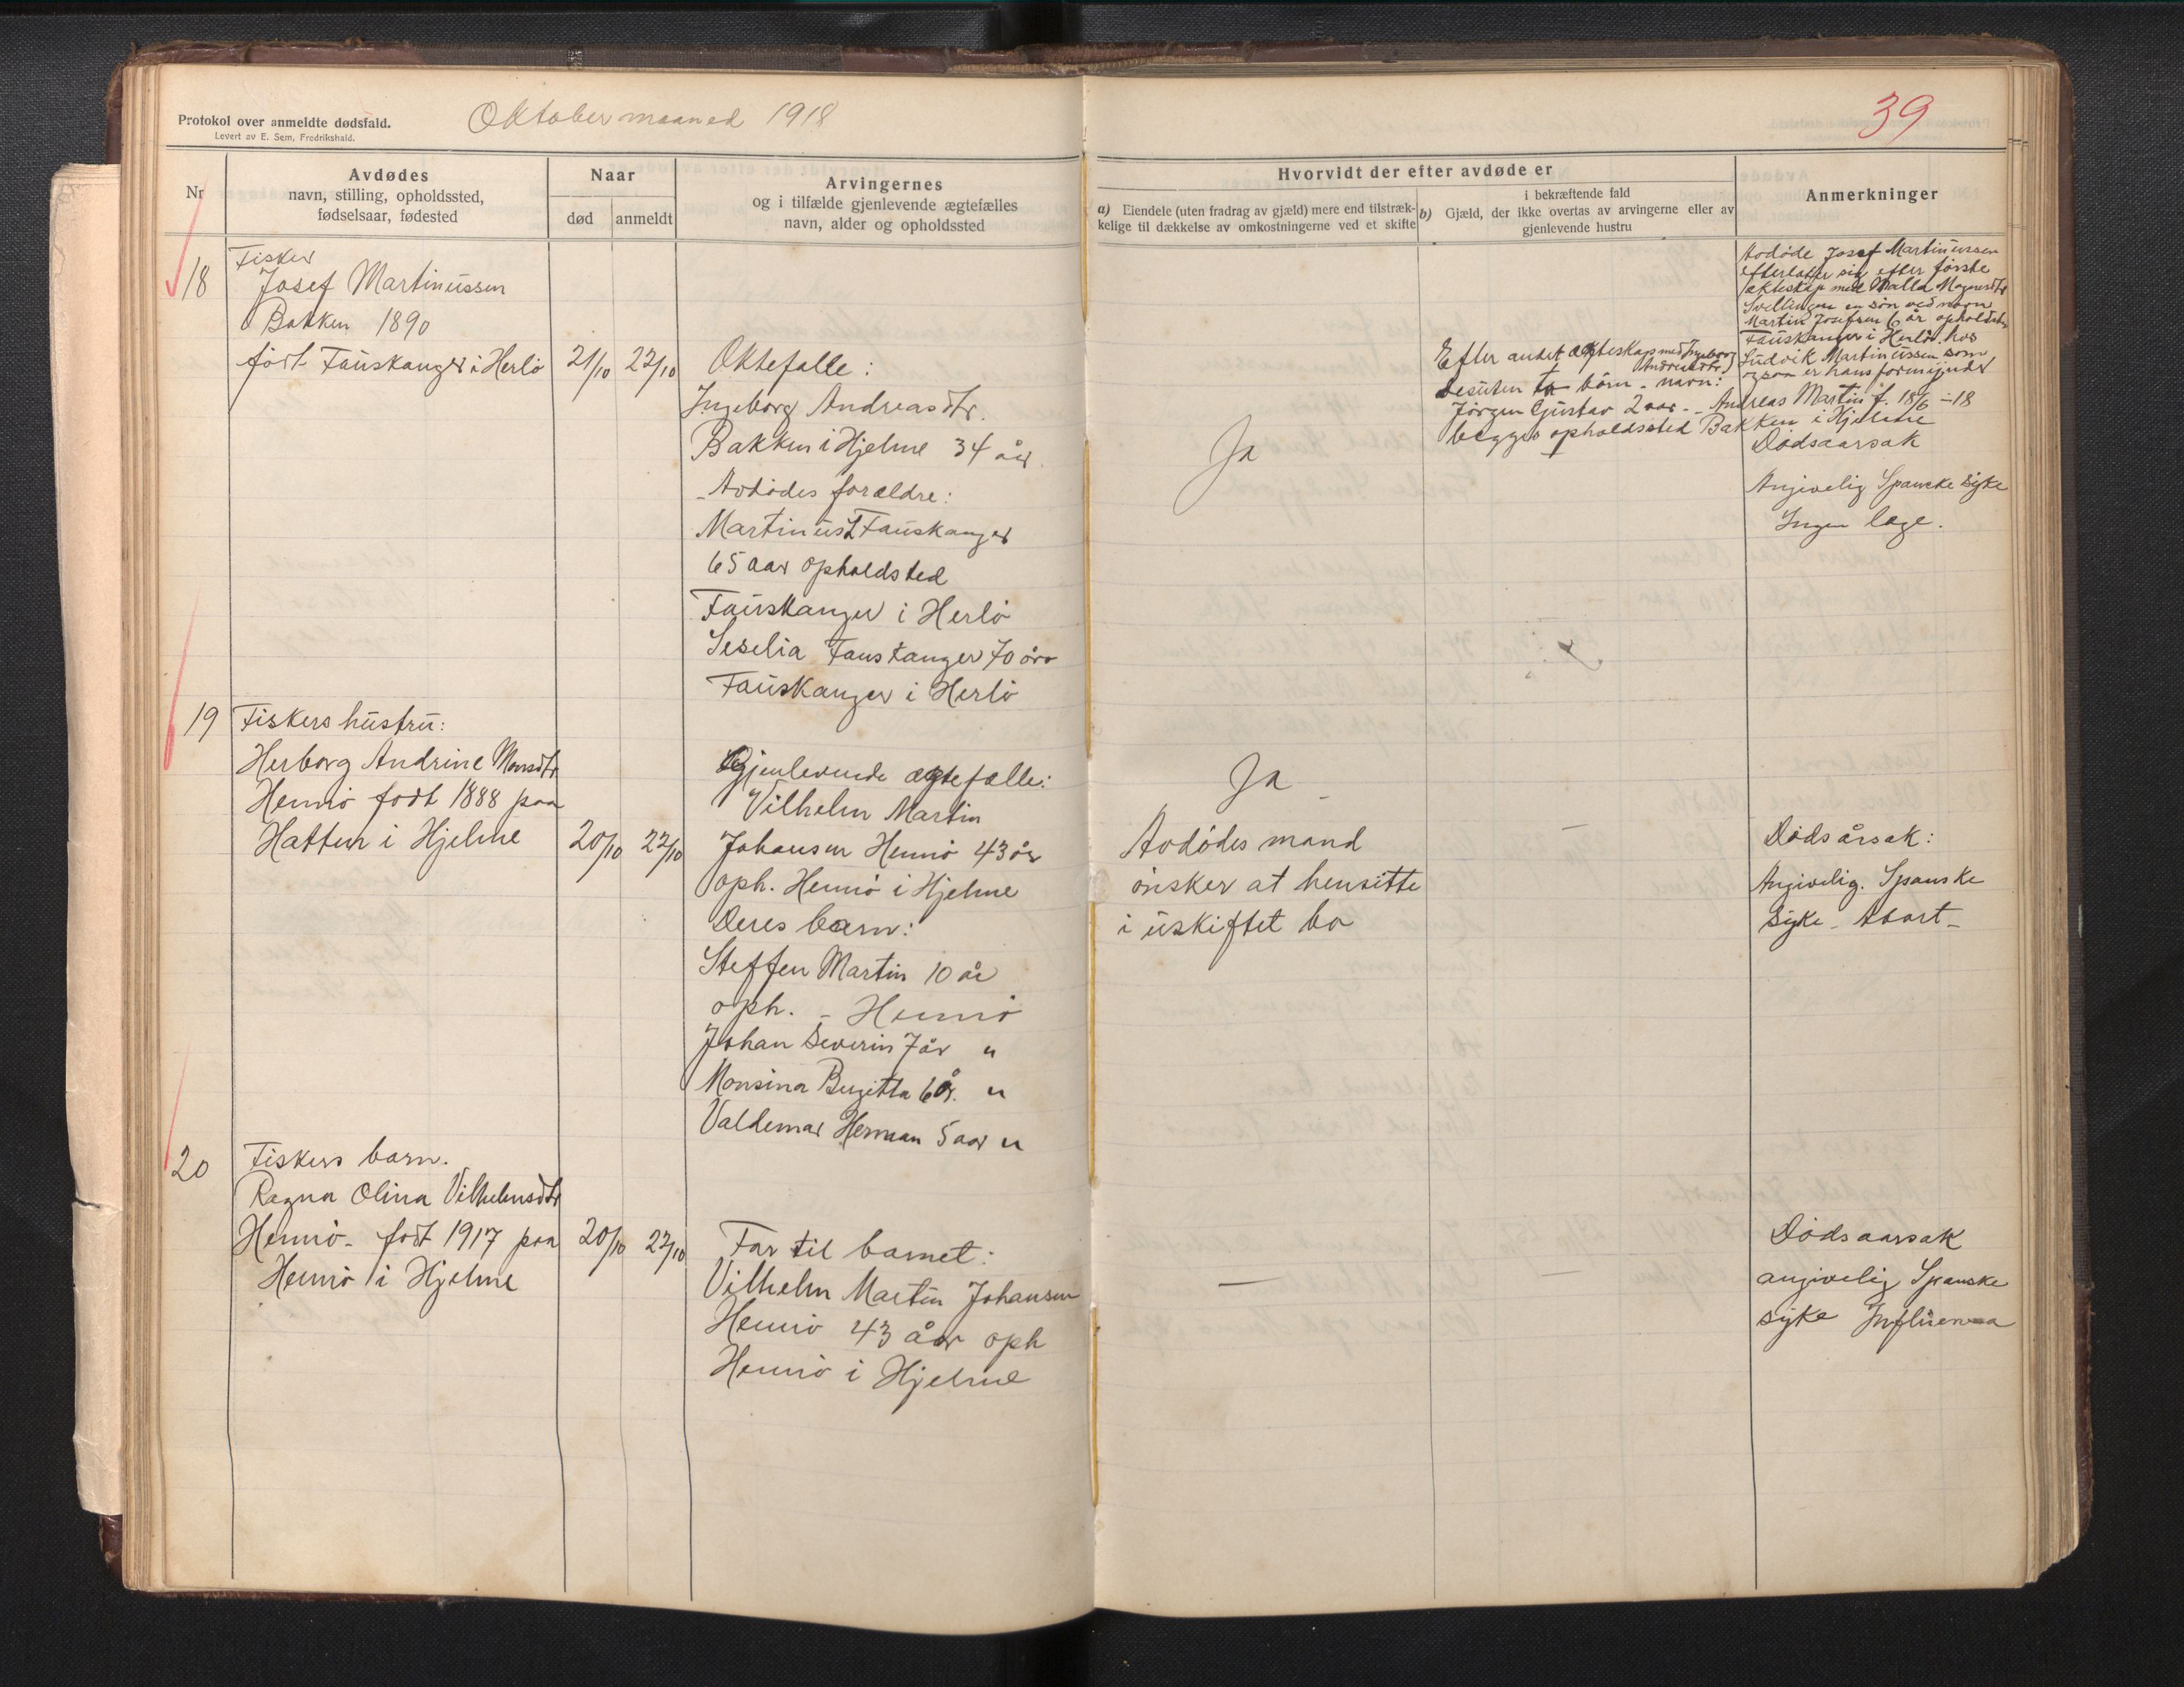 Protokol over anmeldte dødsfald.
Levert av E. Sem, Fredrikshald.
Oktober maaned 1918
39
Nr
Avdødes
navn, stilling, opholdssted,
fødselsaar, fødested
Naar
død
anmeldt
Arvingernes
og i tilfælde gjenlevende ægtefælles
navn, alder og opholdssted
Hvorvidt der efter avdøde er
a) Eiendele (uten fradrag av gjæld) mere end tilstræk-
kelige til dækkelse av omkostningerne ved et skifte
i bekræftende fald
b) Gjæld, der ikke overtas av arvingerne eller av
gjenlevende hustru
Anmerkninger
18
Fisker
Josef Martinussen
Bakken 1890
født Fauskanger i Herlø
21/10
22/10
Ektefalle:
Ingeborg Andreasdtr.
Bakken i Hjelme 34 år
Avdødes forældre:
Martinus I Fauskanger
65 aar opholdsted
Fauskanger i Herlø
Seselia Fauskanger 70 år
Fauskanger i Herlø
Ja
Efter andet ægteskap med Ingeborg
Andreasdtr.)
desuten to børn - navn:
Jörgen Gustav 2 aar - Andreas Martin f. 18/6 - 18
begges opholdssted Bakken i Hjelme
Avdøde Josef Martinussen
efterlater sig efter første
ekteskap med Malla Mognesdtr
Svellingen en søn ved navn
Martin Josefsen 6 år opholdsted
Fauskanger i Herlö hos
Ludvik Martinussen som
ogsaa er hans formynder
Dødsaarsak
Angivelig Spanske syke
Ingen læge.
19
Fiskers hustru:
Herborg Andrine Monsdtr
Hennø født 1888 paa
Hatten i Hjelme
20/10
22/10
Gjenlevende ægtefælle:
Vilhelm Martin
Johansen Hennø 43 år
oph. Hennø i Hjelme
Deres barn:
Steffen Martin 10 år
oph. - Hennø
Johan Severin 7 år "
Monsina Bergitta 6 år. "
Valdemar Herman 5 aar "
Ja -
Avdødes mand
ønsker at hensitte
i uskiftet bo
-
Dødsårsak:
Angivelig. Spanske
syke - Abort -
20
Fiskers barn.
Ragna Olina Vilhelmsdtr
Hennø - født 1917 paa
Hennø i Hjelme
20/10
22/10
Far til barnet:
Vilhelm Martin Johansen
Hennø 43 åar oph
Hennø i Hjelme
-
-
Dødsaarsak
angivelig Spanske
syke Influensa